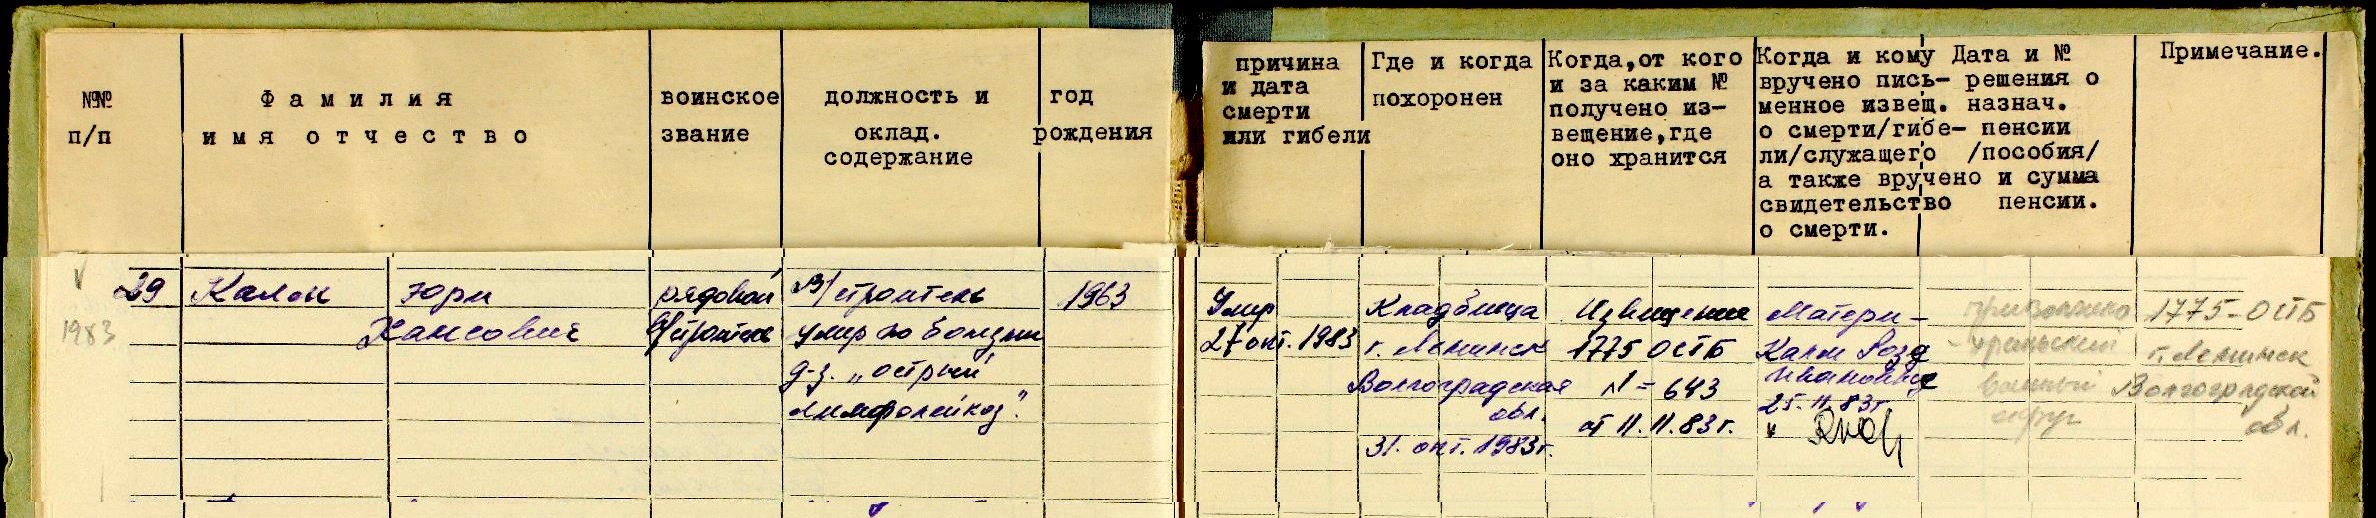 №№
п/п
Фамилия
имя отчество
воинское
звание
должность и
оклад.
содержание
год
рождения
причина
и дата
смерти
или гибели
Где и когда
похоронен
Когда, от кого
и за каким №
получено из-
вещение, где
оно хранится
Когда и кому
вручено пись-
менное извещ.
о смерти/гибе-
ли/служащего
а также вручено
свидетельство
о смерти.
Дата и №
решения о
назнач.
пенсии
/пособия/
и сумма
пенсии.
Примечание.
1983
29
Калм
Юри
Хансович
рядовой
В/строитель
умер по болезни
д-з. „острый
лимфолейкоз".
1963
Умер
27 окт. 1983
Кладбища
г. Ленинск
Волгоградская
обл.
31. окт. 1983г.
Извещение
1775 ОСТБ
№ = 643
от 11.11.83г.
Матери-
Калм Роза
Ивановне
25.11.83г
Приволжско
-Уральский
военный
округ
1775-ОСТБ
г. Ленинск
Волгоградской
обл.